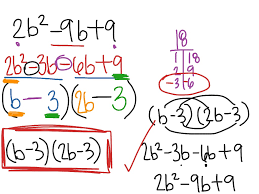 2b² - 9b + 9
2b² - 3b - 6b + 9
(b - 3)(2b - 3)
(b-3)(2b-3)
18
1 18
2 9
-3 -6
(b-3)(2b-3)
2b² - 3b - 6b + 9
2b² - 9b + 9